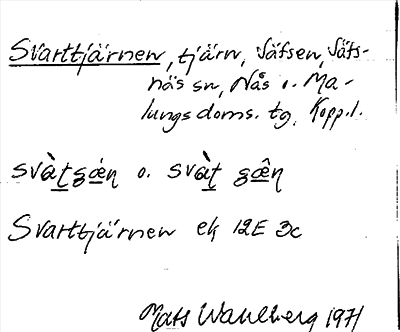 Svarttjärnen, tjärn, Säfsen, Säfs-
näs sn, Nås o. Ma-
lungs doms. tg, Kopp.l.
svàt̲gǽ̲ņ o. svàt̲ gæ̲̂ņ
Svarttjärnen ek 12E 3c
Mats Wahlberg 1971